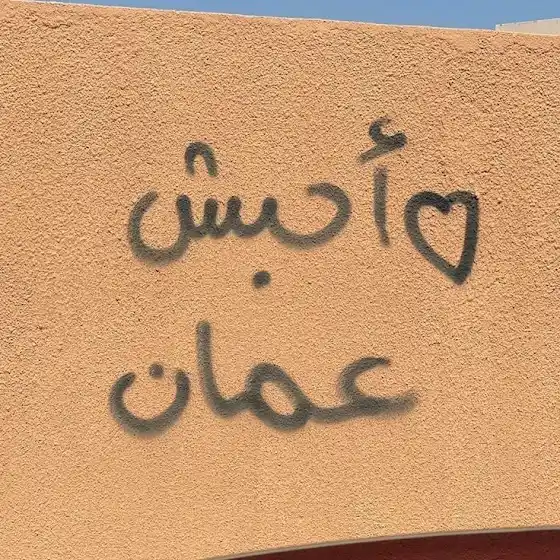 ♡ أحبش
عمان